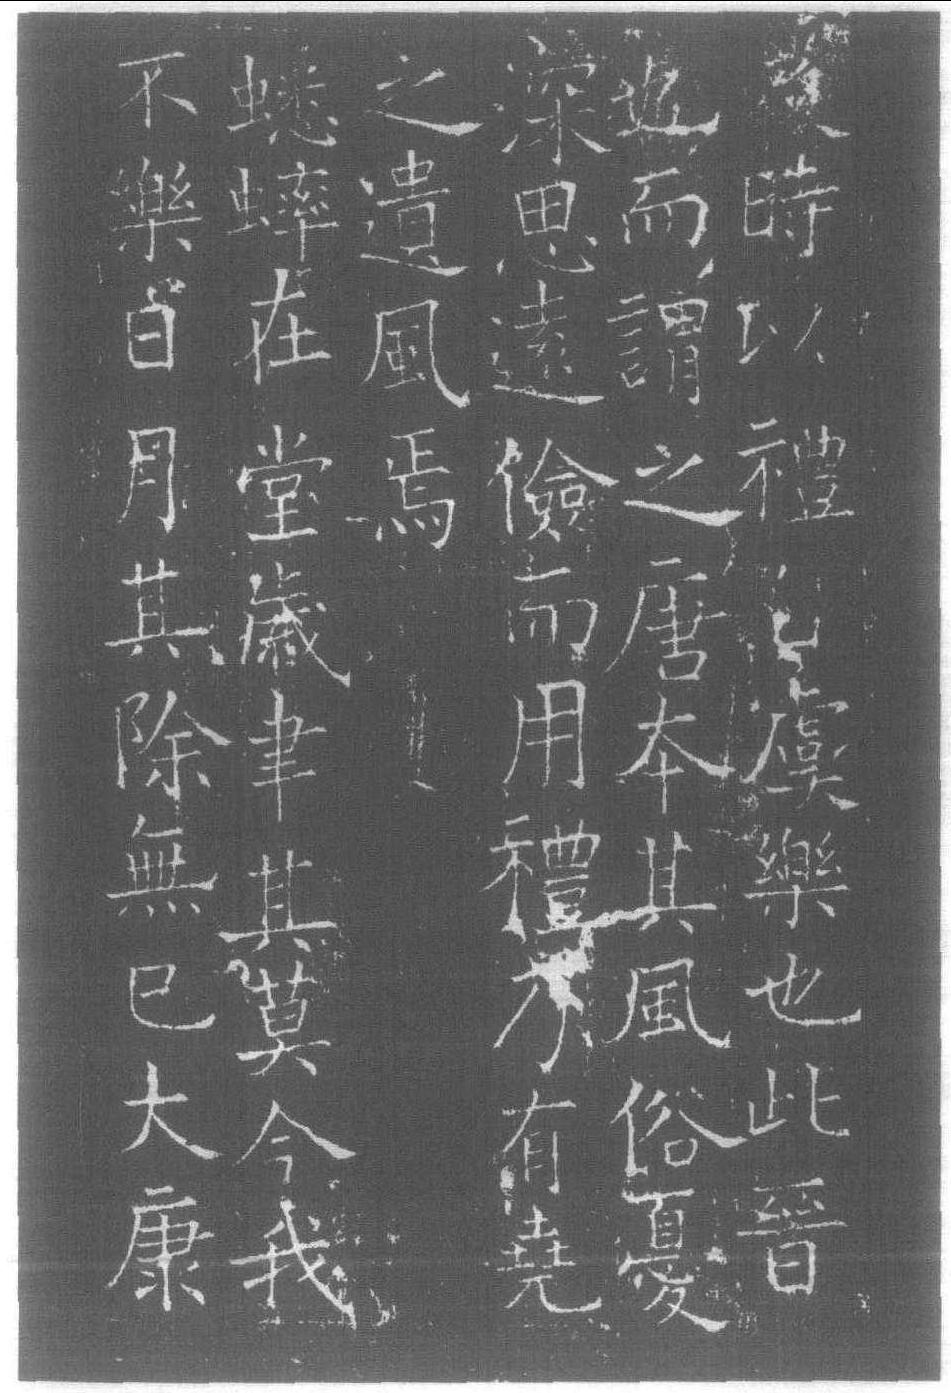 及時以禮自虞樂也此晉
也而謂之唐本其風俗憂
深思遠儉而用禮乃有堯
之遺風焉
蟋蟀在堂歲聿其莫今我
不樂日月其除無已大康